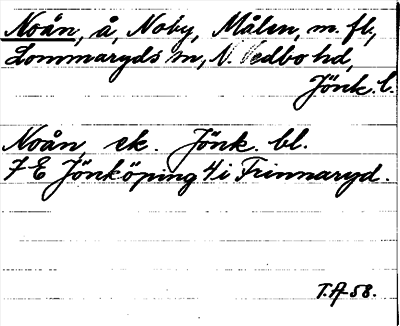 Noån, å, Noby, Målen, m. fl.,
Lommaryds sn, N. Vedbo hd,
Jönk. l.
Noån, ek. Jönk. bl.
7 E Jönköping 4 i Frinnaryd.
T.A 58.